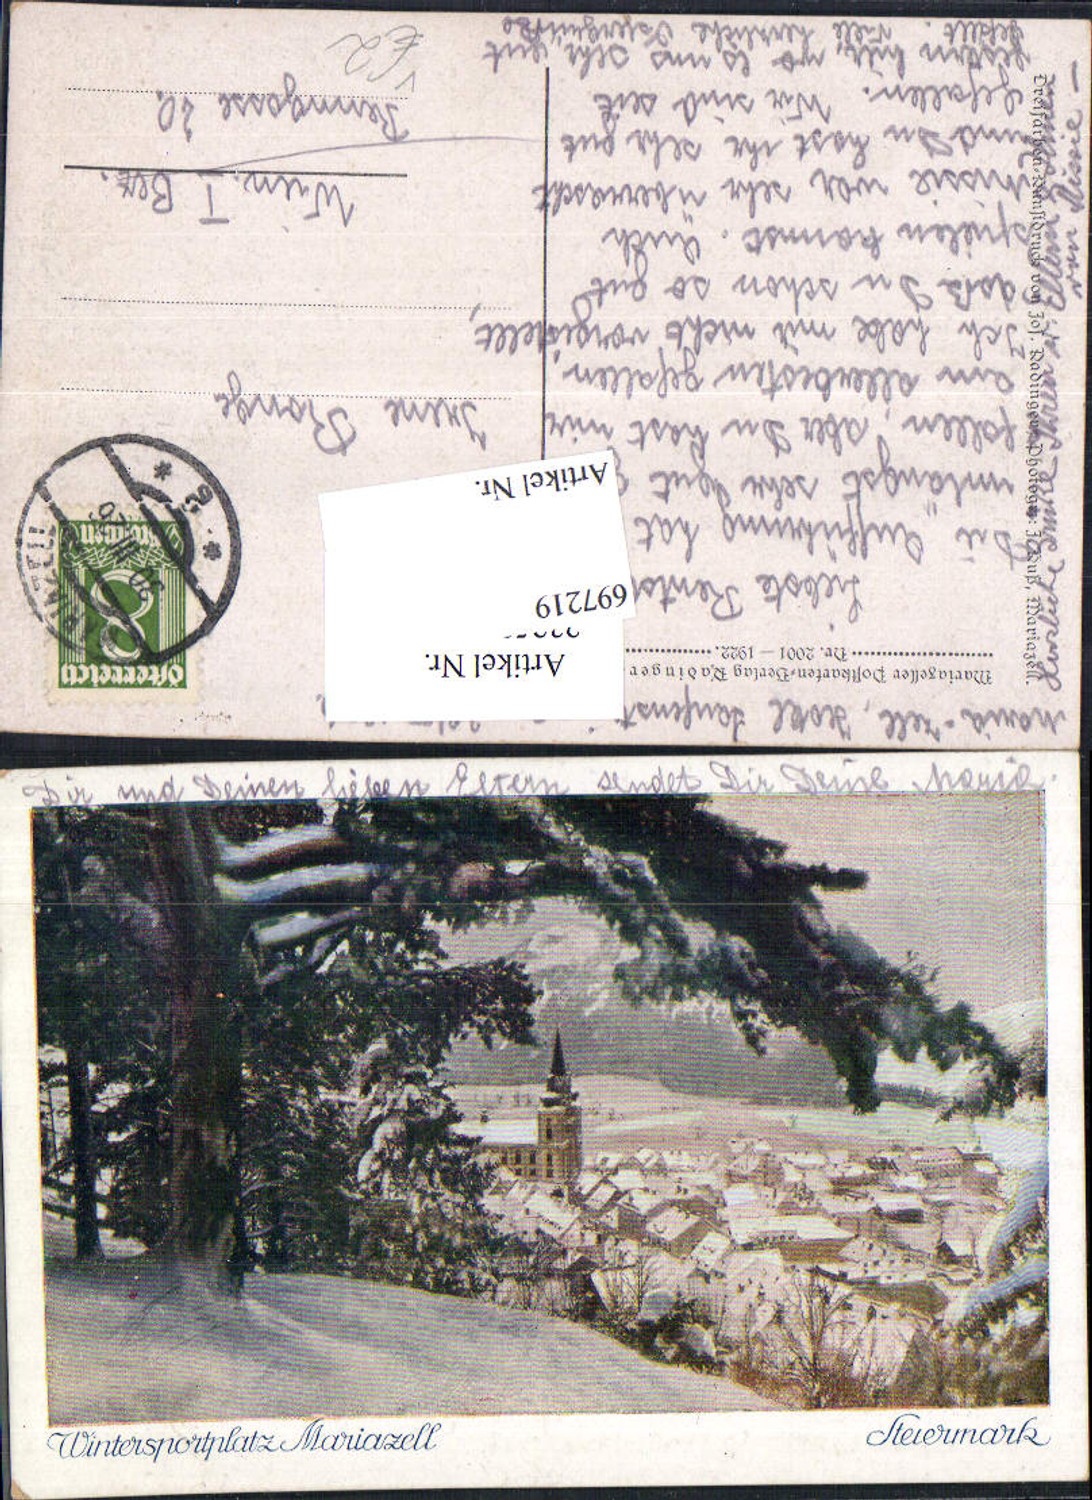 Maria-Zell, Hotel Laufenst
Mariazeller Postkarten-Verlag Radinger
Nr. 2001 — 1922.
Liebste
Die Aufführung hat
unlängst sehr gut
fallen, aber Du hast mir
am allerbesten gefallen,
Ich habe mir nicht vorgestellt,
daß Du schon so gut
spielen kannst. Auch
Missie war sehr überrascht
und Du hast ihr sehr gut
gefallen. Wir sind seit
gestern hier, wo es uns sehr gut
gefällt. Viele herzliche Ostergrüße
Dreifarben-Kunstdruck von Jos. Radinger, Photogr.: J. Kuß, Mariazell.
von Missie —
Österreich
8
Groschen
Irene
Wien. I Bez.
Renngasse 20.
€2
Artikel Nr.
697219
Artikel Nr.
Dir und Deinen lieben Eltern sendet Dir Deine Maria.
Wintersportplatz Mariazell
Steiermark